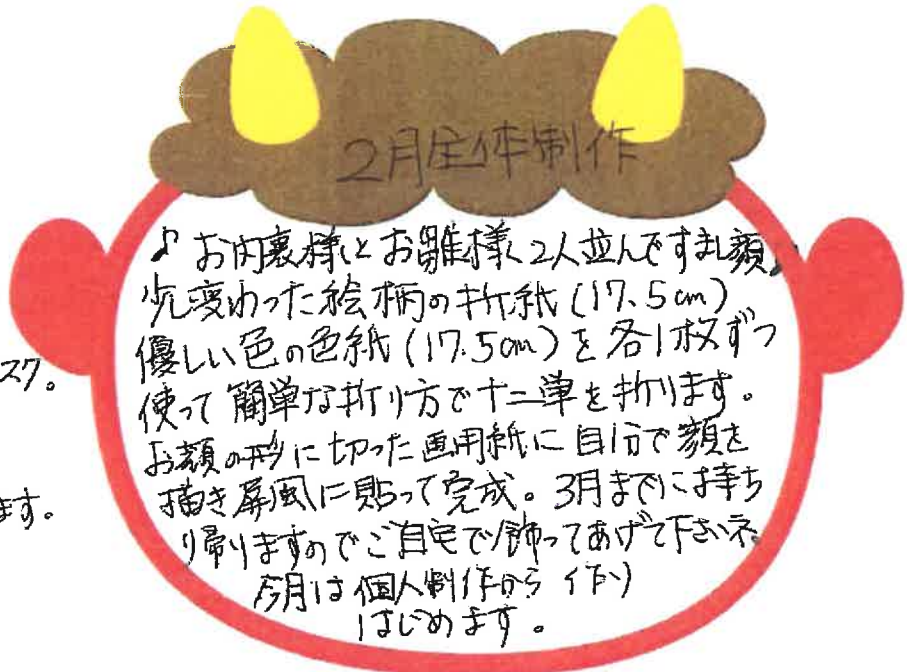 2月全体制作
♪お内裏様とお雛様く2人並んですまし顔♪
少し変わった絵柄の折紙(17.5cm)
優しい色の色紙(17.5cm)を各1枚ずつ
使って簡単な折り方で十二単を折ります。
お顔の形に切った画用紙に自分で顔を
描き屏風に貼って完成。3月までには持ち
り帰りますのでご自宅で飾ってあげて下さいネ。
今月は個人制作から作り
はじめます。
スク。
ます。